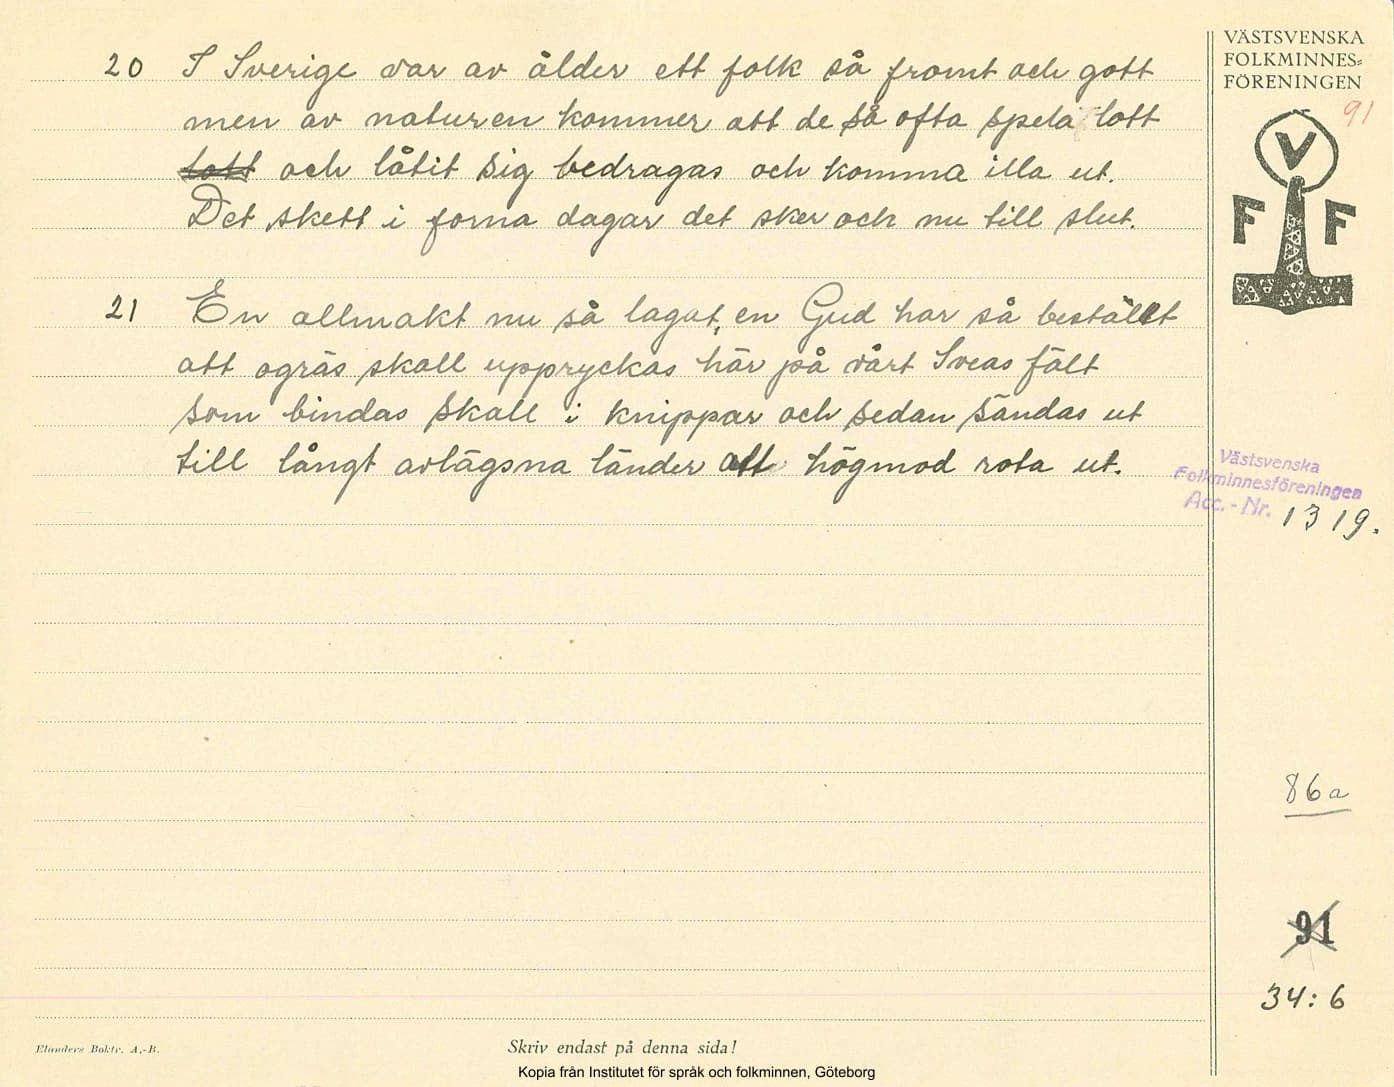 20 I Sverige var av ålder ett folk så fromt och gott
men av naturen kommer att de så ofta spela lott
tott och låtit sig bedragas och komma illa ut.
Det skett i forna dagar det sker och nu till slut.
21 En allmakt nu så lagat, en Gud har så beställt
att ogräs skall uppryckas här på vårt Sveas fält
som bindas skall i knippar och sedan sändas ut
till långt avlägsna länder att högmod rota ut.
VÄSTSVENSKA
FOLKMINNES=
FÖRENINGEN
91
V
F F
Västsvenska
Folkminnesföreningen
Acc. - Nr. 1319.
86a
91
34:6
Elanders Boktr. A.-B.
Skriv endast på denna sida!
Kopia från Institutet för språk och folkminnen, Göteborg